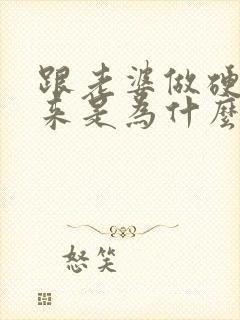 跟老婆做硬
来是为什麼
怒笑